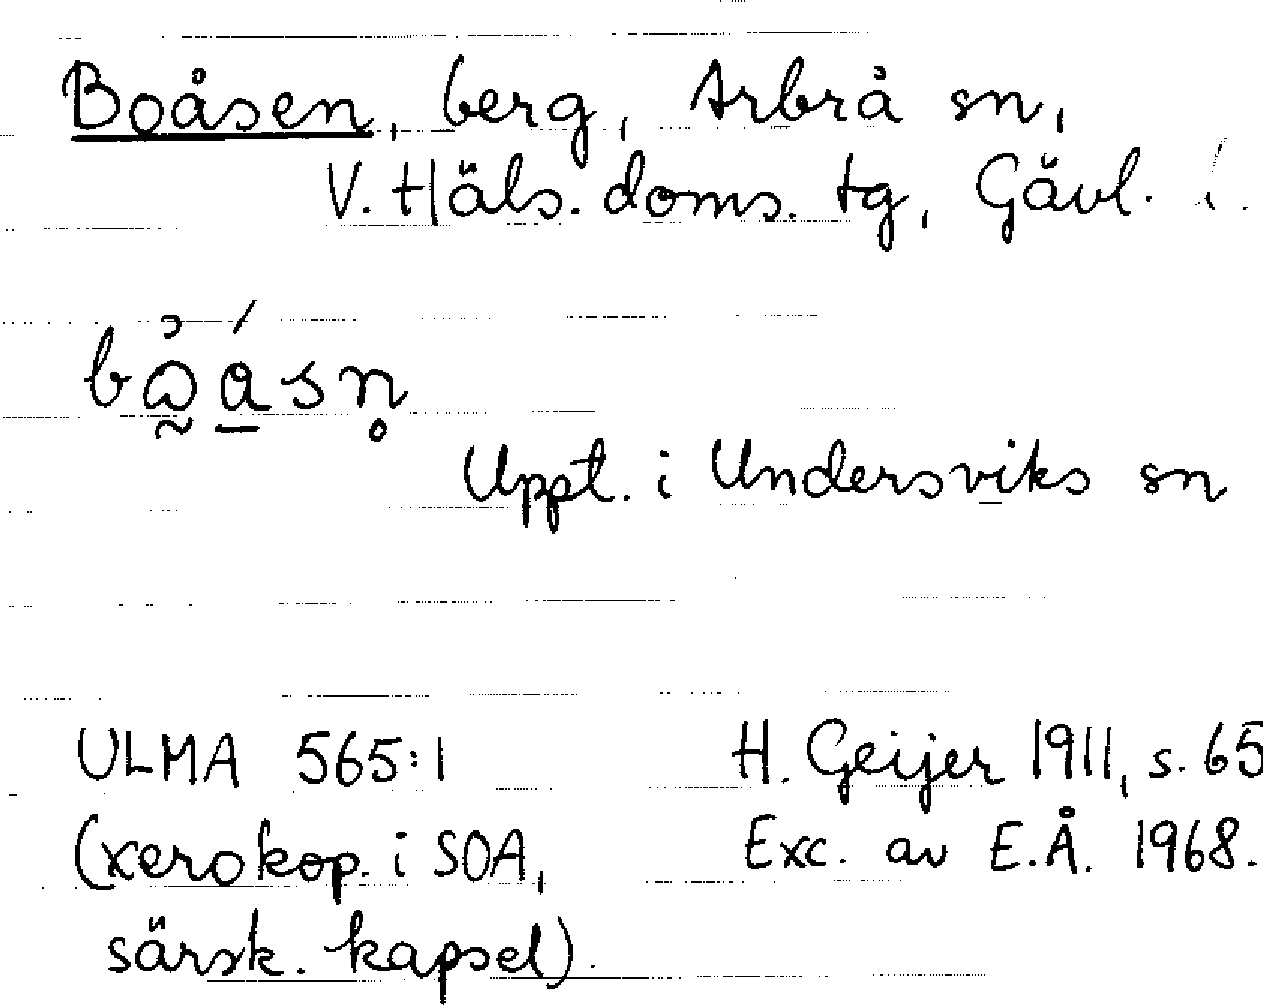 Boåsen, berg, Arbrå sn,
V. Häls. doms. tg, Gävl. l.
Uppt. i Undersviks sn
ULMA 565:1 H. Geijer 1911, s. 65
(xerokop. i SOA, Exc. av E.Å. 1968.
särsk. kapsel).